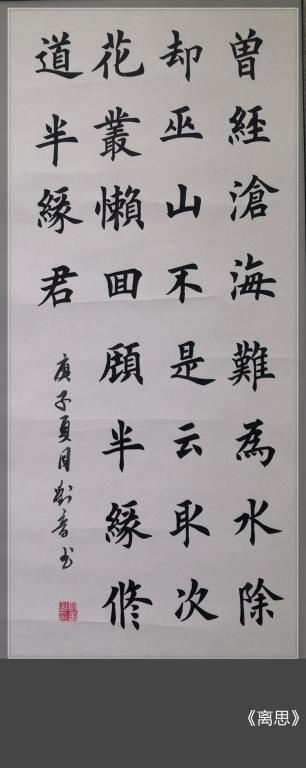 曾經滄海難為水除
却巫山不是云取次
花叢懶回顧半緣修
道半緣君
庚子夏月刘音书
《离思》